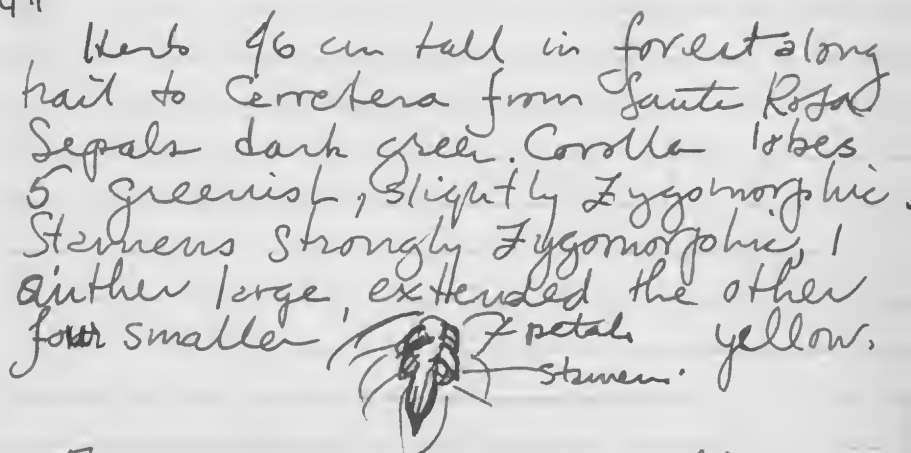 Herb 46 cm tall in forest along
trail to Carretera from Santa Rosa
Sepals dark green. Corolla lobes
5 greenish, slightly zygomorphic.
Stamens strongly zygomorphic, 1
anther large, extended the other
four smaller petals yellow.
stamens.